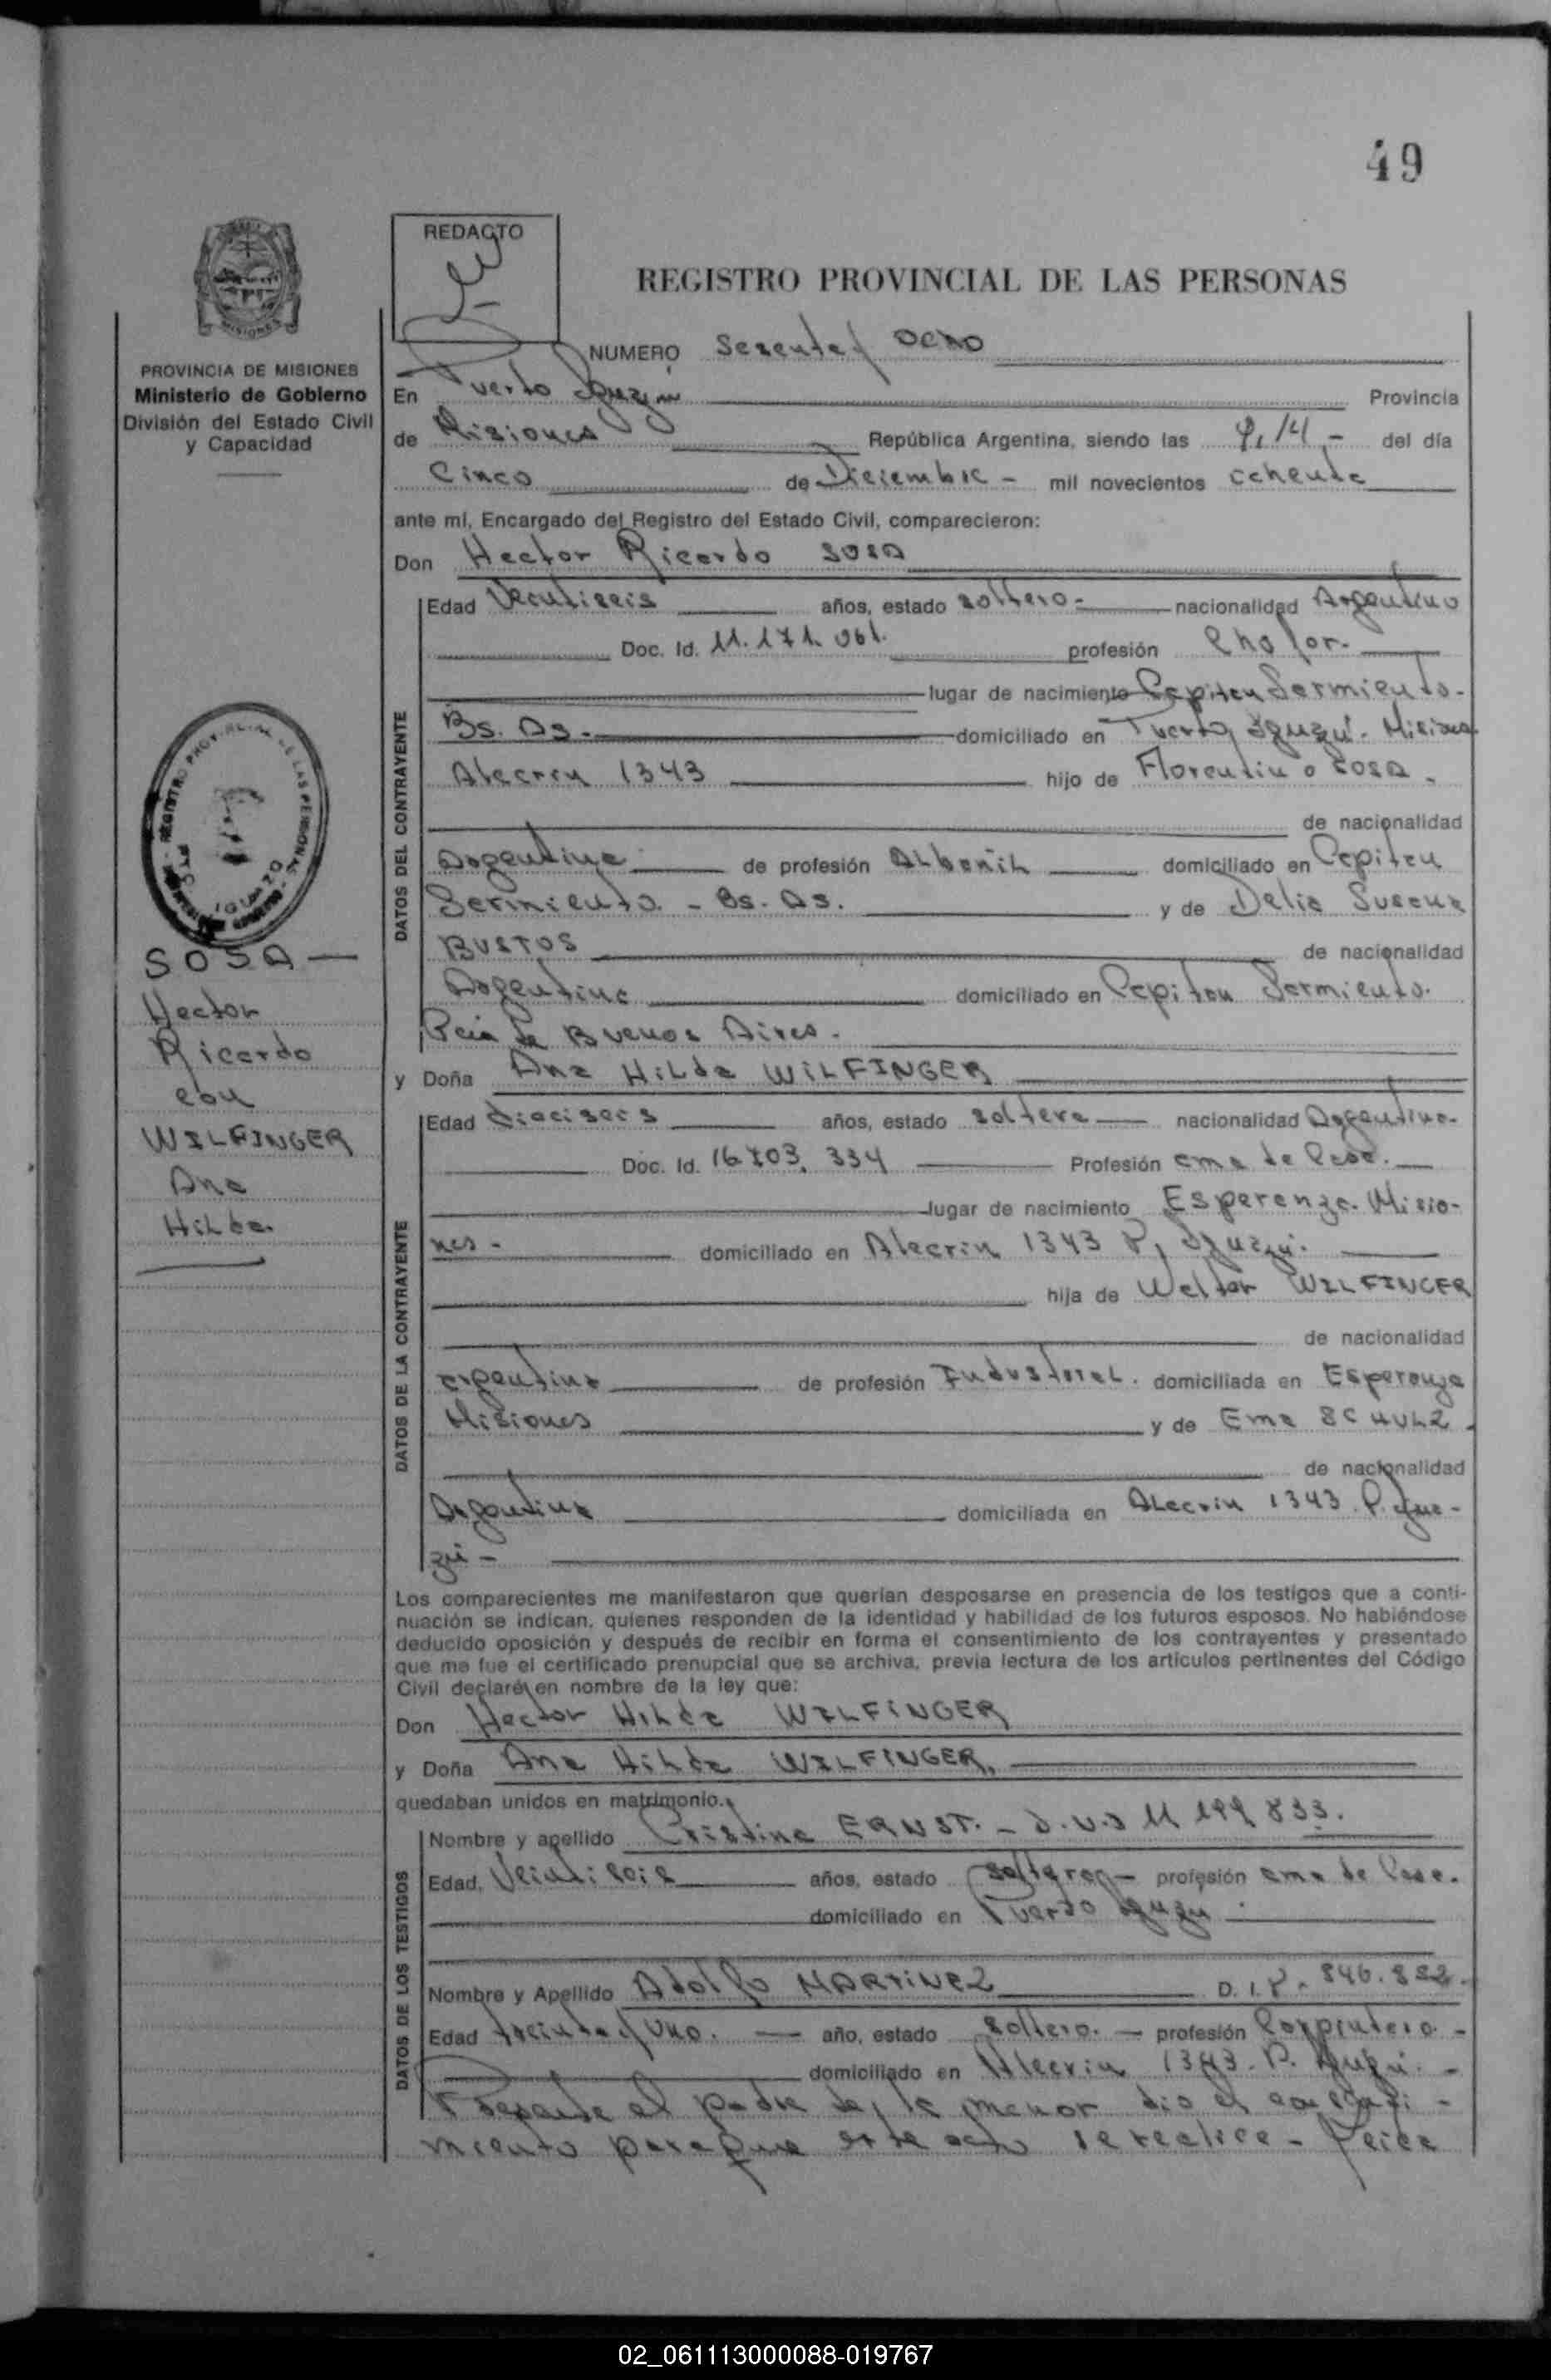 49
REDACTO
REGISTRO PROVINCIAL DE LAS PERSONAS
PROVINCIA DE MISIONES
Ministerio de Gobierno
División del Estado Civil
y Capacidad
NUMERO Sesenta y ocho
En Puerto Iguazú Provincia
de Misiones República Argentina, siendo las 9,14 - del día
Cinco de Diciembre - mil novecientos ochenta
ante mí, Encargado del Registro del Estado Civil, comparecieron:
Don Hector Ricardo SOSA
DATOS DEL CONTRAYENTE
Edad Veintiseis años, estado soltero - nacionalidad Argentino
Doc. Id. 11.171.061. profesión Chofer.
lugar de nacimiento Capitan Sarmiento -
Bs. As. - domiciliado en Puerto Iguazú - Misiones
Alecrin 1343 hijo de Florentino SOSA -
de nacionalidad
Argentina de profesión Albañil domiciliado en Capitan
Sarmiento - Bs. As. y de Delia Susana
BUSTOS de nacionalidad
Argentina domiciliado en Capitan Sarmiento.
Pcia de Buenos Aires -
y Doña Ana Hilda WILFINGER
DATOS DE LA CONTRAYENTE
Edad dieciseis años, estado soltera nacionalidad Argentina -
Doc. Id. 16.703.334 Profesión ama de Casa.
lugar de nacimiento Esperanza - Misio-
nes - domiciliado en Alecrin 1343 P, Iguazú.
hija de Walter WILFINGER
de nacionalidad
argentina de profesión Industrial. domiciliada en Esperanza
Misiones y de Ema SCHULZ -
de nacionalidad
Argentina domiciliada en Alecrin 1343 P. Igua-
zú -
Los comparecientes me manifestaron que querían desposarse en presencia de los testigos que a conti-
nuación se indican, quienes responden de la identidad y habilidad de los futuros esposos. No habiéndose
deducido oposición y después de recibir en forma el consentimiento de los contrayentes y presentado
que me fue el certificado prenupcial que se archiva, previa lectura de los artículos pertinentes del Código
Civil declaré en nombre de la ley que:
Don Hector Hilda WILFINGER
y Doña Ana Hilda WILFINGER,
quedaban unidos en matrimonio.
DATOS DE LOS TESTIGOS
Nombre y apellido Cristina ERNST. - D.N.I 11 199 833.
Edad, Veintiseis años, estado soltera - profesión ama de Casa.
domiciliado en Puerto Iguazú
Nombre y Apellido Adolfo MARTINEZ D.I. 8.846.832.
Edad treinta y uno. año, estado soltero. - profesión Carpintero -
domiciliado en Alecrin 1343 - P. Iguazú. -
Presente el padre de la menor dio el consenti-
miento para que este acto se realice -
REGISTRO PROVINCIAL DE LAS PERSONAS
PTO. IGUAZU
SOSA
Hector
Ricardo
con
WILFINGER
Ana
Hilda.
02_061113000088-019767